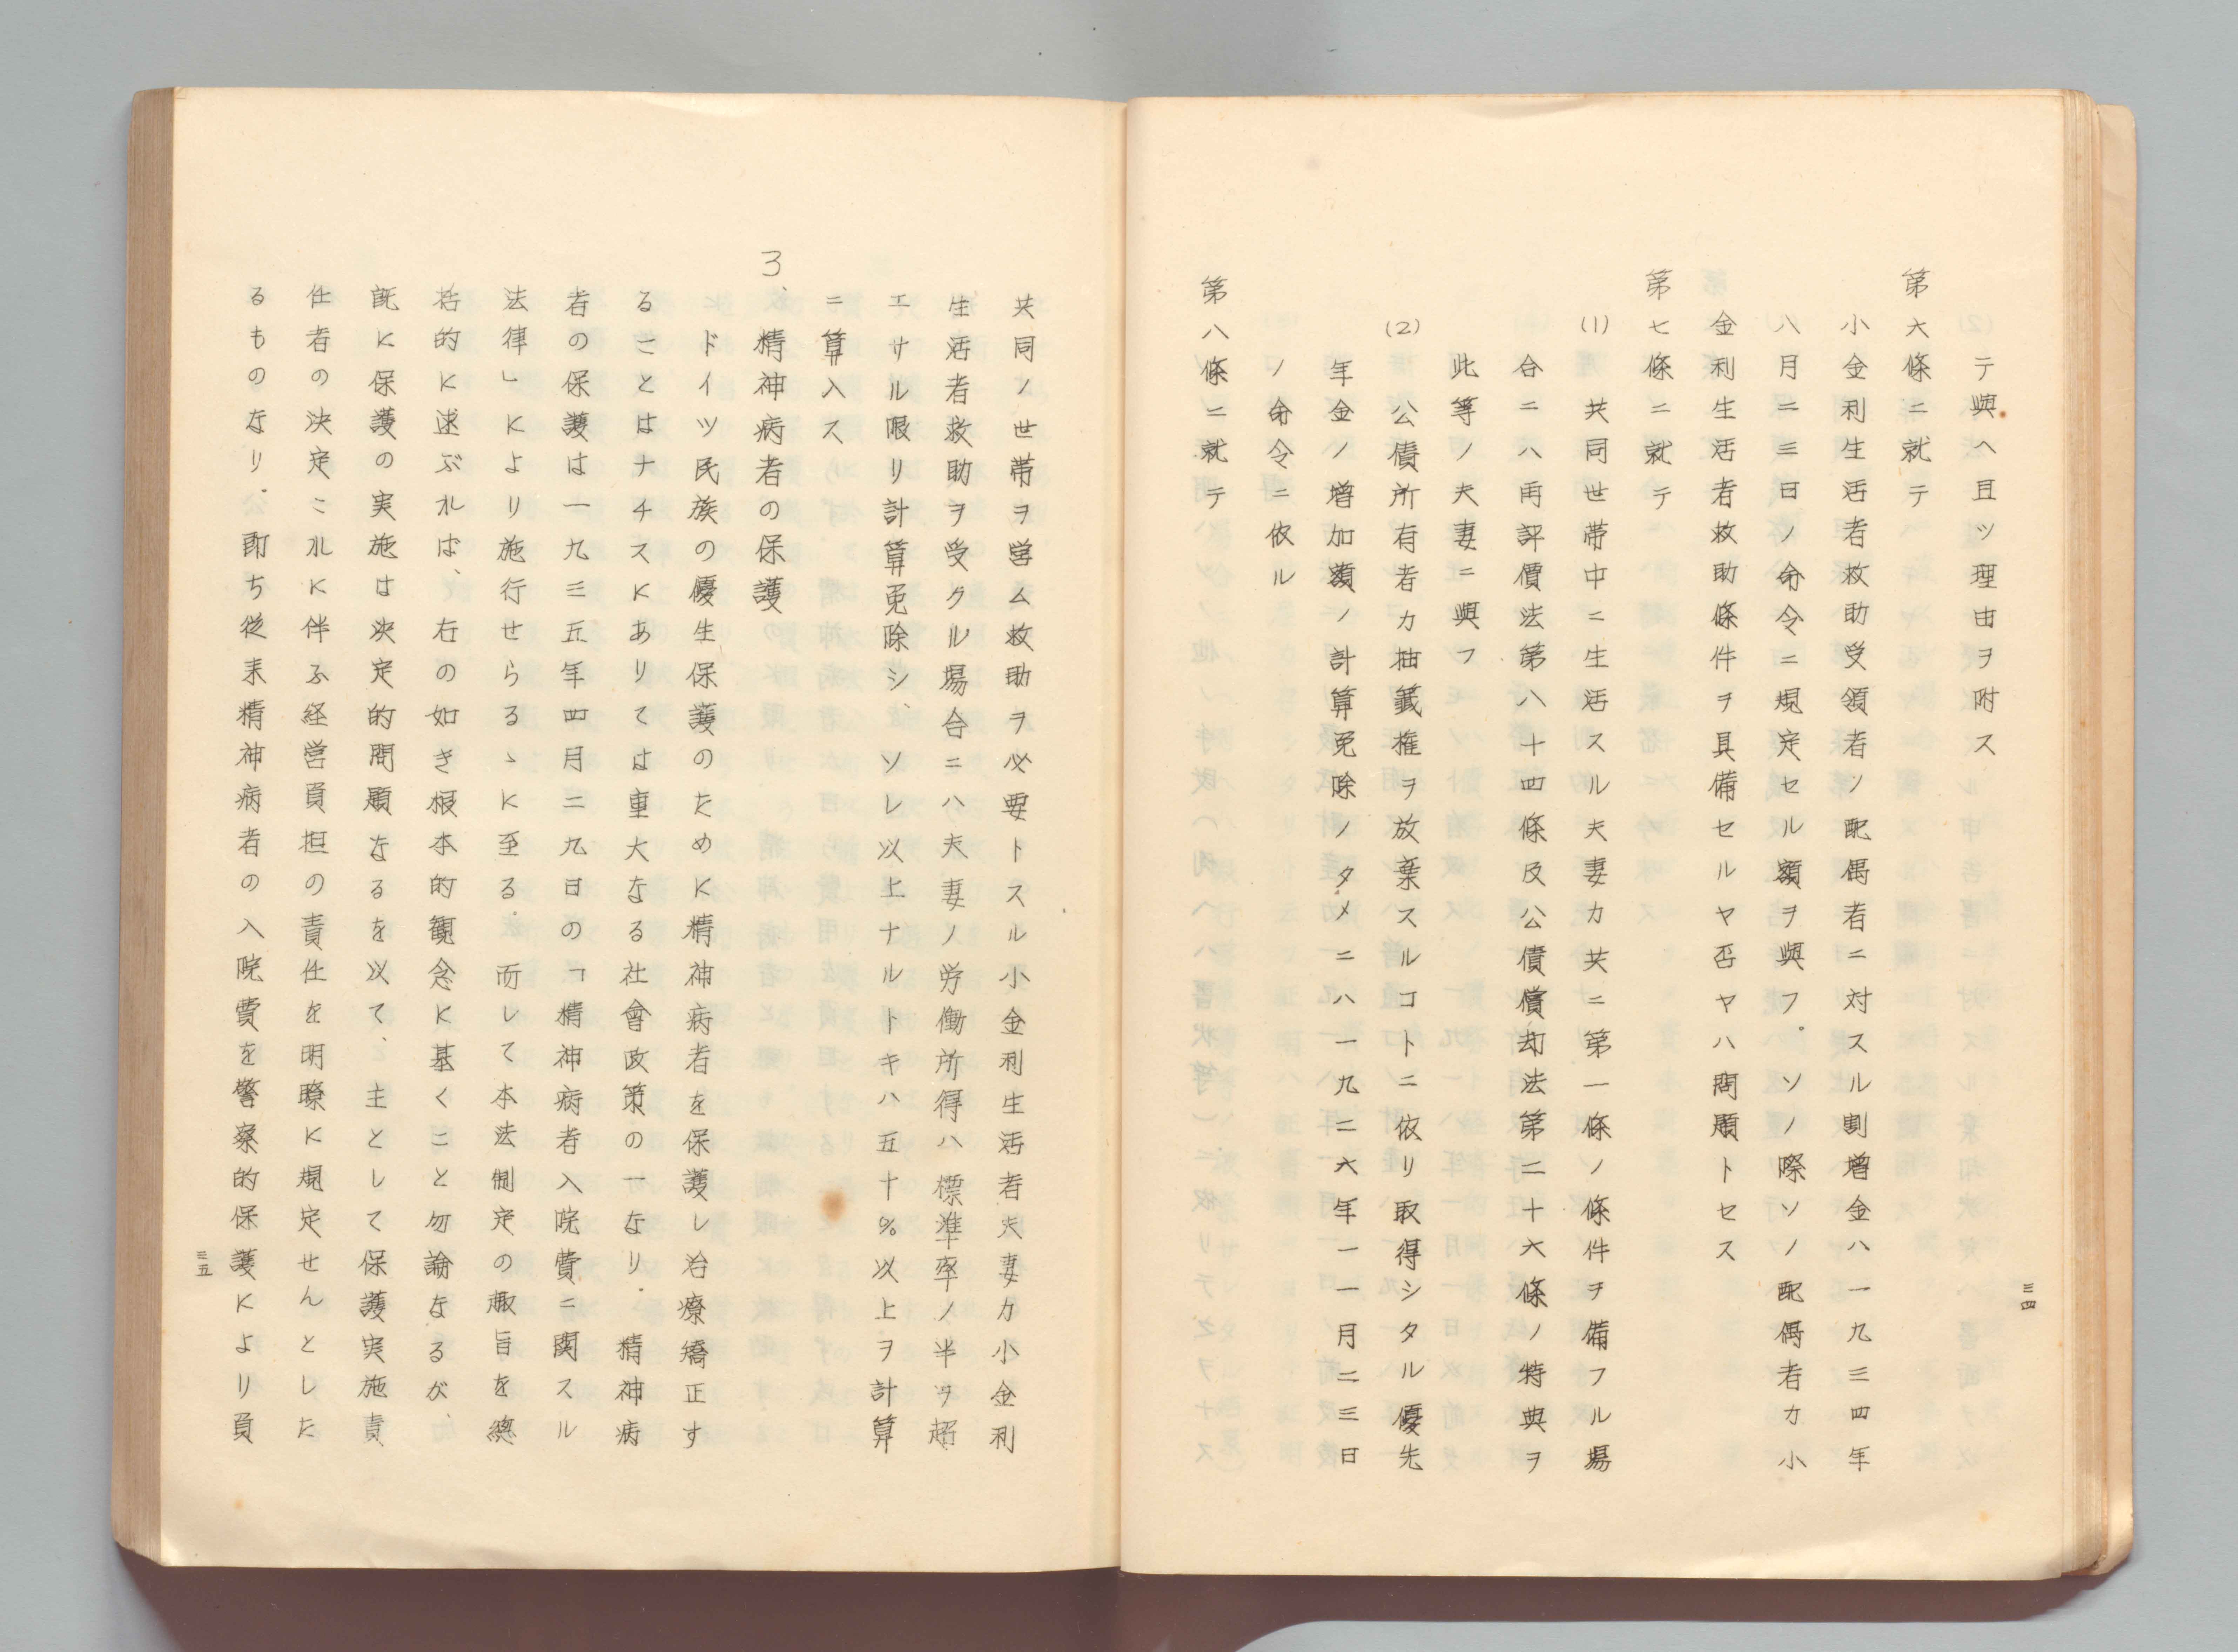 テ與ヘ且ツ理由ヲ附ス
第六條ニ就テ
小金利生活者救助受領者ノ配偶者ニ対スル割増金ハ一九三四年
八月二三日ノ命令ニ規定セル額ヲ與フ。ソノ際ソノ配偶者カ小
金利生活者救助條件ヲ具備セルヤ否ヤハ問題トセス
第七條ニ就テ
(1) 共同世帯中ニ生活スル夫妻カ共ニ第一條ノ條件ヲ備フル場
合ニハ再評價法第八十四條及公債償却法第二十六條ノ特典ヲ
此等ノ夫妻ニ與フ
(2) 公債所有者カ抽籤権ヲ放棄スルコトニ依リ取得シタル優先
年金ノ増加額ノ計算免除ノタメニハ一九二六年一一月二三日
ノ命令ニ依ル
第八條ニ就テ
三四
共同ノ世帯ヲ営ム救助ヲ必要トスル小金利生活者夫妻カ小金利
生活者救助ヲ受クル場合ニハ夫妻ノ労働所得ハ標準率ノ半ヲ超
エサル限リ計算免除シ、ソレ以上ナルトキハ五十%以上ヲ計算
ニ算入ス
3、精神病者の保護
ドイツ民族の優生保護のために精神病者を保護し治療矯正す
ることはナチスにありては重大なる社會政策の一なり。精神病
者の保護は一九三五年四月二九日の「精神病者入院費ニ関スル
法律」により施行せらるゝに至る。而して本法制定の趣旨を総
括的に述ぶれば、右の如き根本的観念に基くこと勿論なるが、
既に保護の実施は決定的問題なるを以て、主として保護実施責
任者の決定これに伴ふ経営負担の責任を明瞭に規定せんとした
るものなり。即ち従来精神病者の入院費を警察的保護により負
三五